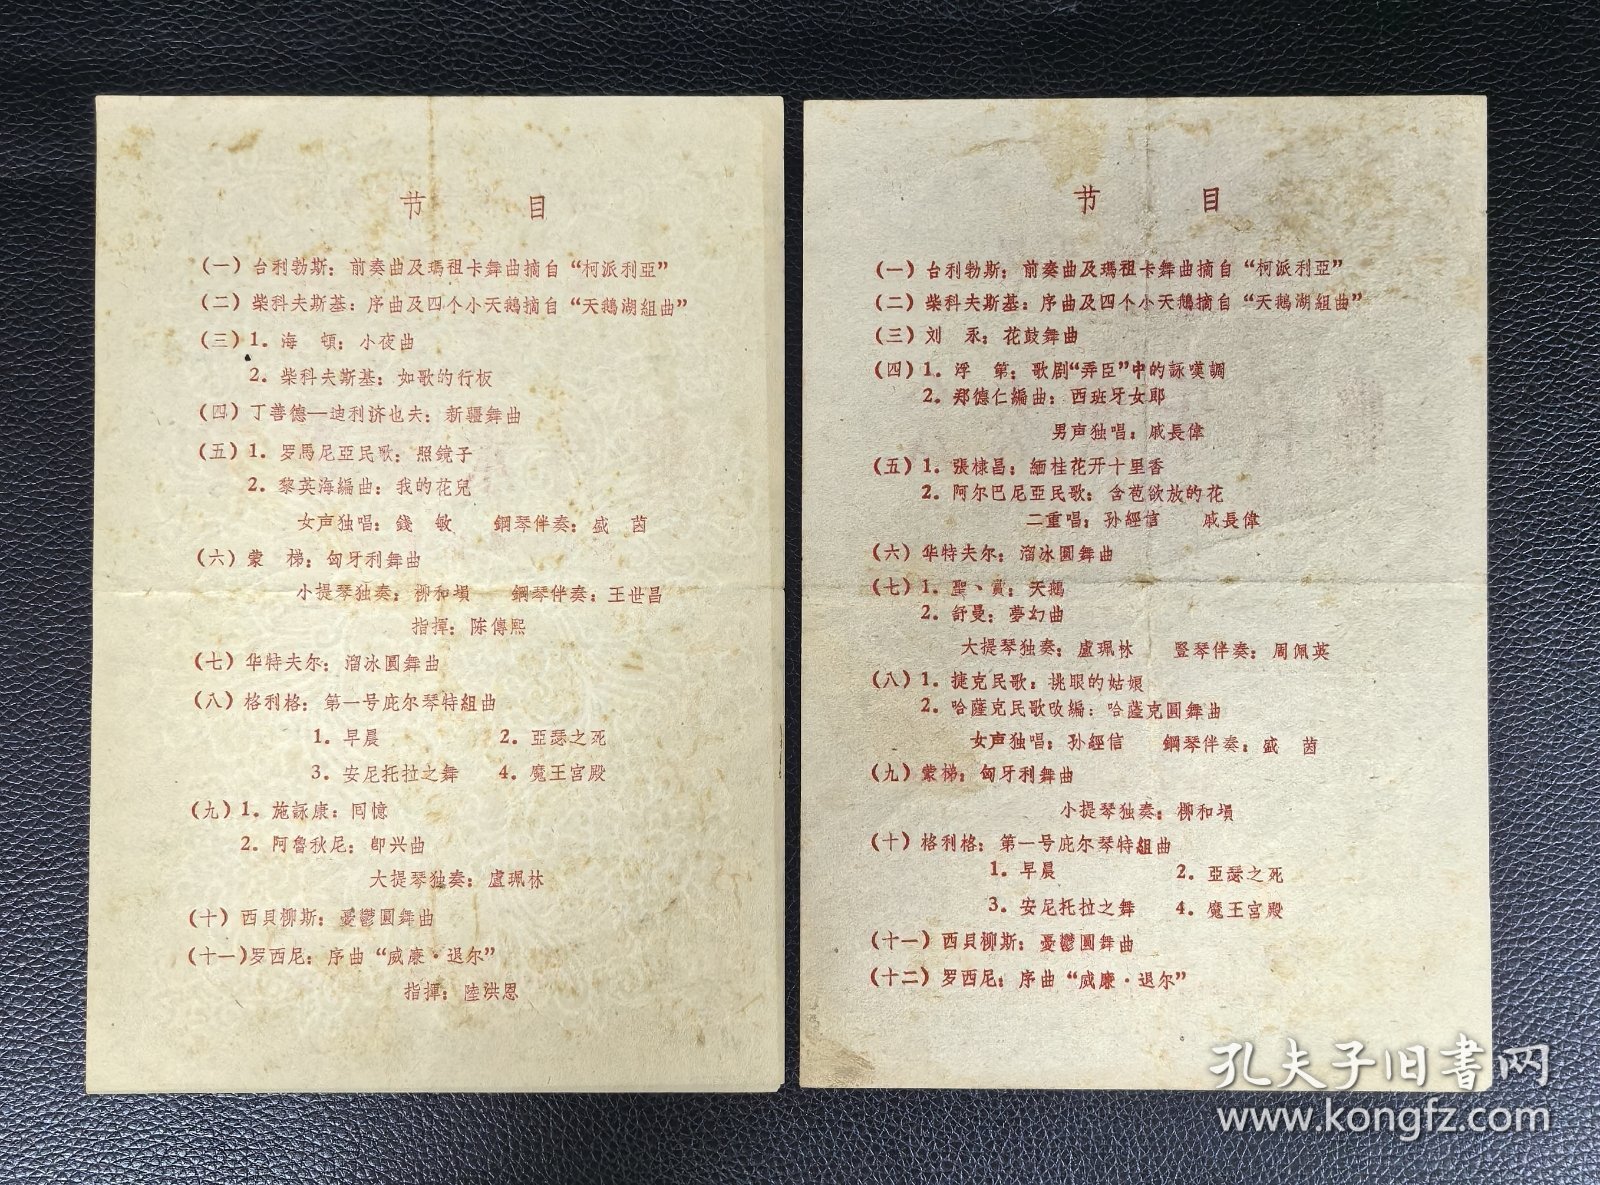 节 目
(一) 台利勃斯: 前奏曲及瑪祖卡舞曲摘自 “柯派利亞”
(二) 柴科夫斯基: 序曲及四个小天鵝摘自 “天鵝湖組曲”
(三) 1. 海 頓: 小夜曲
2. 柴科夫斯基: 如歌的行板
(四) 丁善德—迪利济也夫: 新疆舞曲
(五) 1. 罗馬尼亞民歌: 照鏡子
2. 黎英海編曲: 我的花兒
女声独唱: 錢 敏 鋼琴伴奏: 盛 茵
(六) 蒙 梯: 匈牙利舞曲
小提琴独奏: 柳和塤 鋼琴伴奏: 王世昌
指揮: 陈傳熙
(七) 华特夫尔: 溜冰圓舞曲
(八) 格利格: 第一号庇尔琴特組曲
1. 早晨 2. 亞瑟之死
3. 安尼托拉之舞 4. 魔王宮殿
(九) 1. 施詠康: 囘憶
2. 阿魯秋尼: 卽兴曲
大提琴独奏: 盧珮林
(十) 西貝柳斯: 憂鬱圓舞曲
(十一) 罗西尼: 序曲 “威廉·退尔”
指揮: 陸洪恩
节 目
(一) 台利勃斯: 前奏曲及瑪祖卡舞曲摘自 “柯派利亞”
(二) 柴科夫斯基: 序曲及四个小天鵝摘自 “天鵝湖組曲”
(三) 刘 汞: 花鼓舞曲
(四) 1. 浮 第: 歌剧“弄臣”中的詠嘆調
2. 郑德仁編曲: 西班牙女郎
男声独唱: 戚長偉
(五) 1. 張棣昌: 緬桂花开十里香
2. 阿尔巴尼亞民歌: 含苞欲放的花
二重唱: 孙經信 戚長偉
(六) 华特夫尔: 溜冰圓舞曲
(七) 1. 聖、賞: 天鵝
2. 舒曼: 夢幻曲
大提琴独奏: 盧珮林 豎琴伴奏: 周佩英
(八) 1. 捷克民歌: 挑眼的姑娘
2. 哈薩克民歌改編: 哈薩克圓舞曲
女声独唱: 孙經信 鋼琴伴奏: 盛 茵
(九) 蒙梯: 匈牙利舞曲
小提琴独奏: 柳和塤
(十) 格利格: 第一号庇尔琴特組曲
1. 早晨 2. 亞瑟之死
3. 安尼托拉之舞 4. 魔王宮殿
(十一) 西貝柳斯: 憂鬱圓舞曲
(十二) 罗西尼: 序曲 “威廉·退尔”
孔夫子旧書网
www.kongfz.com